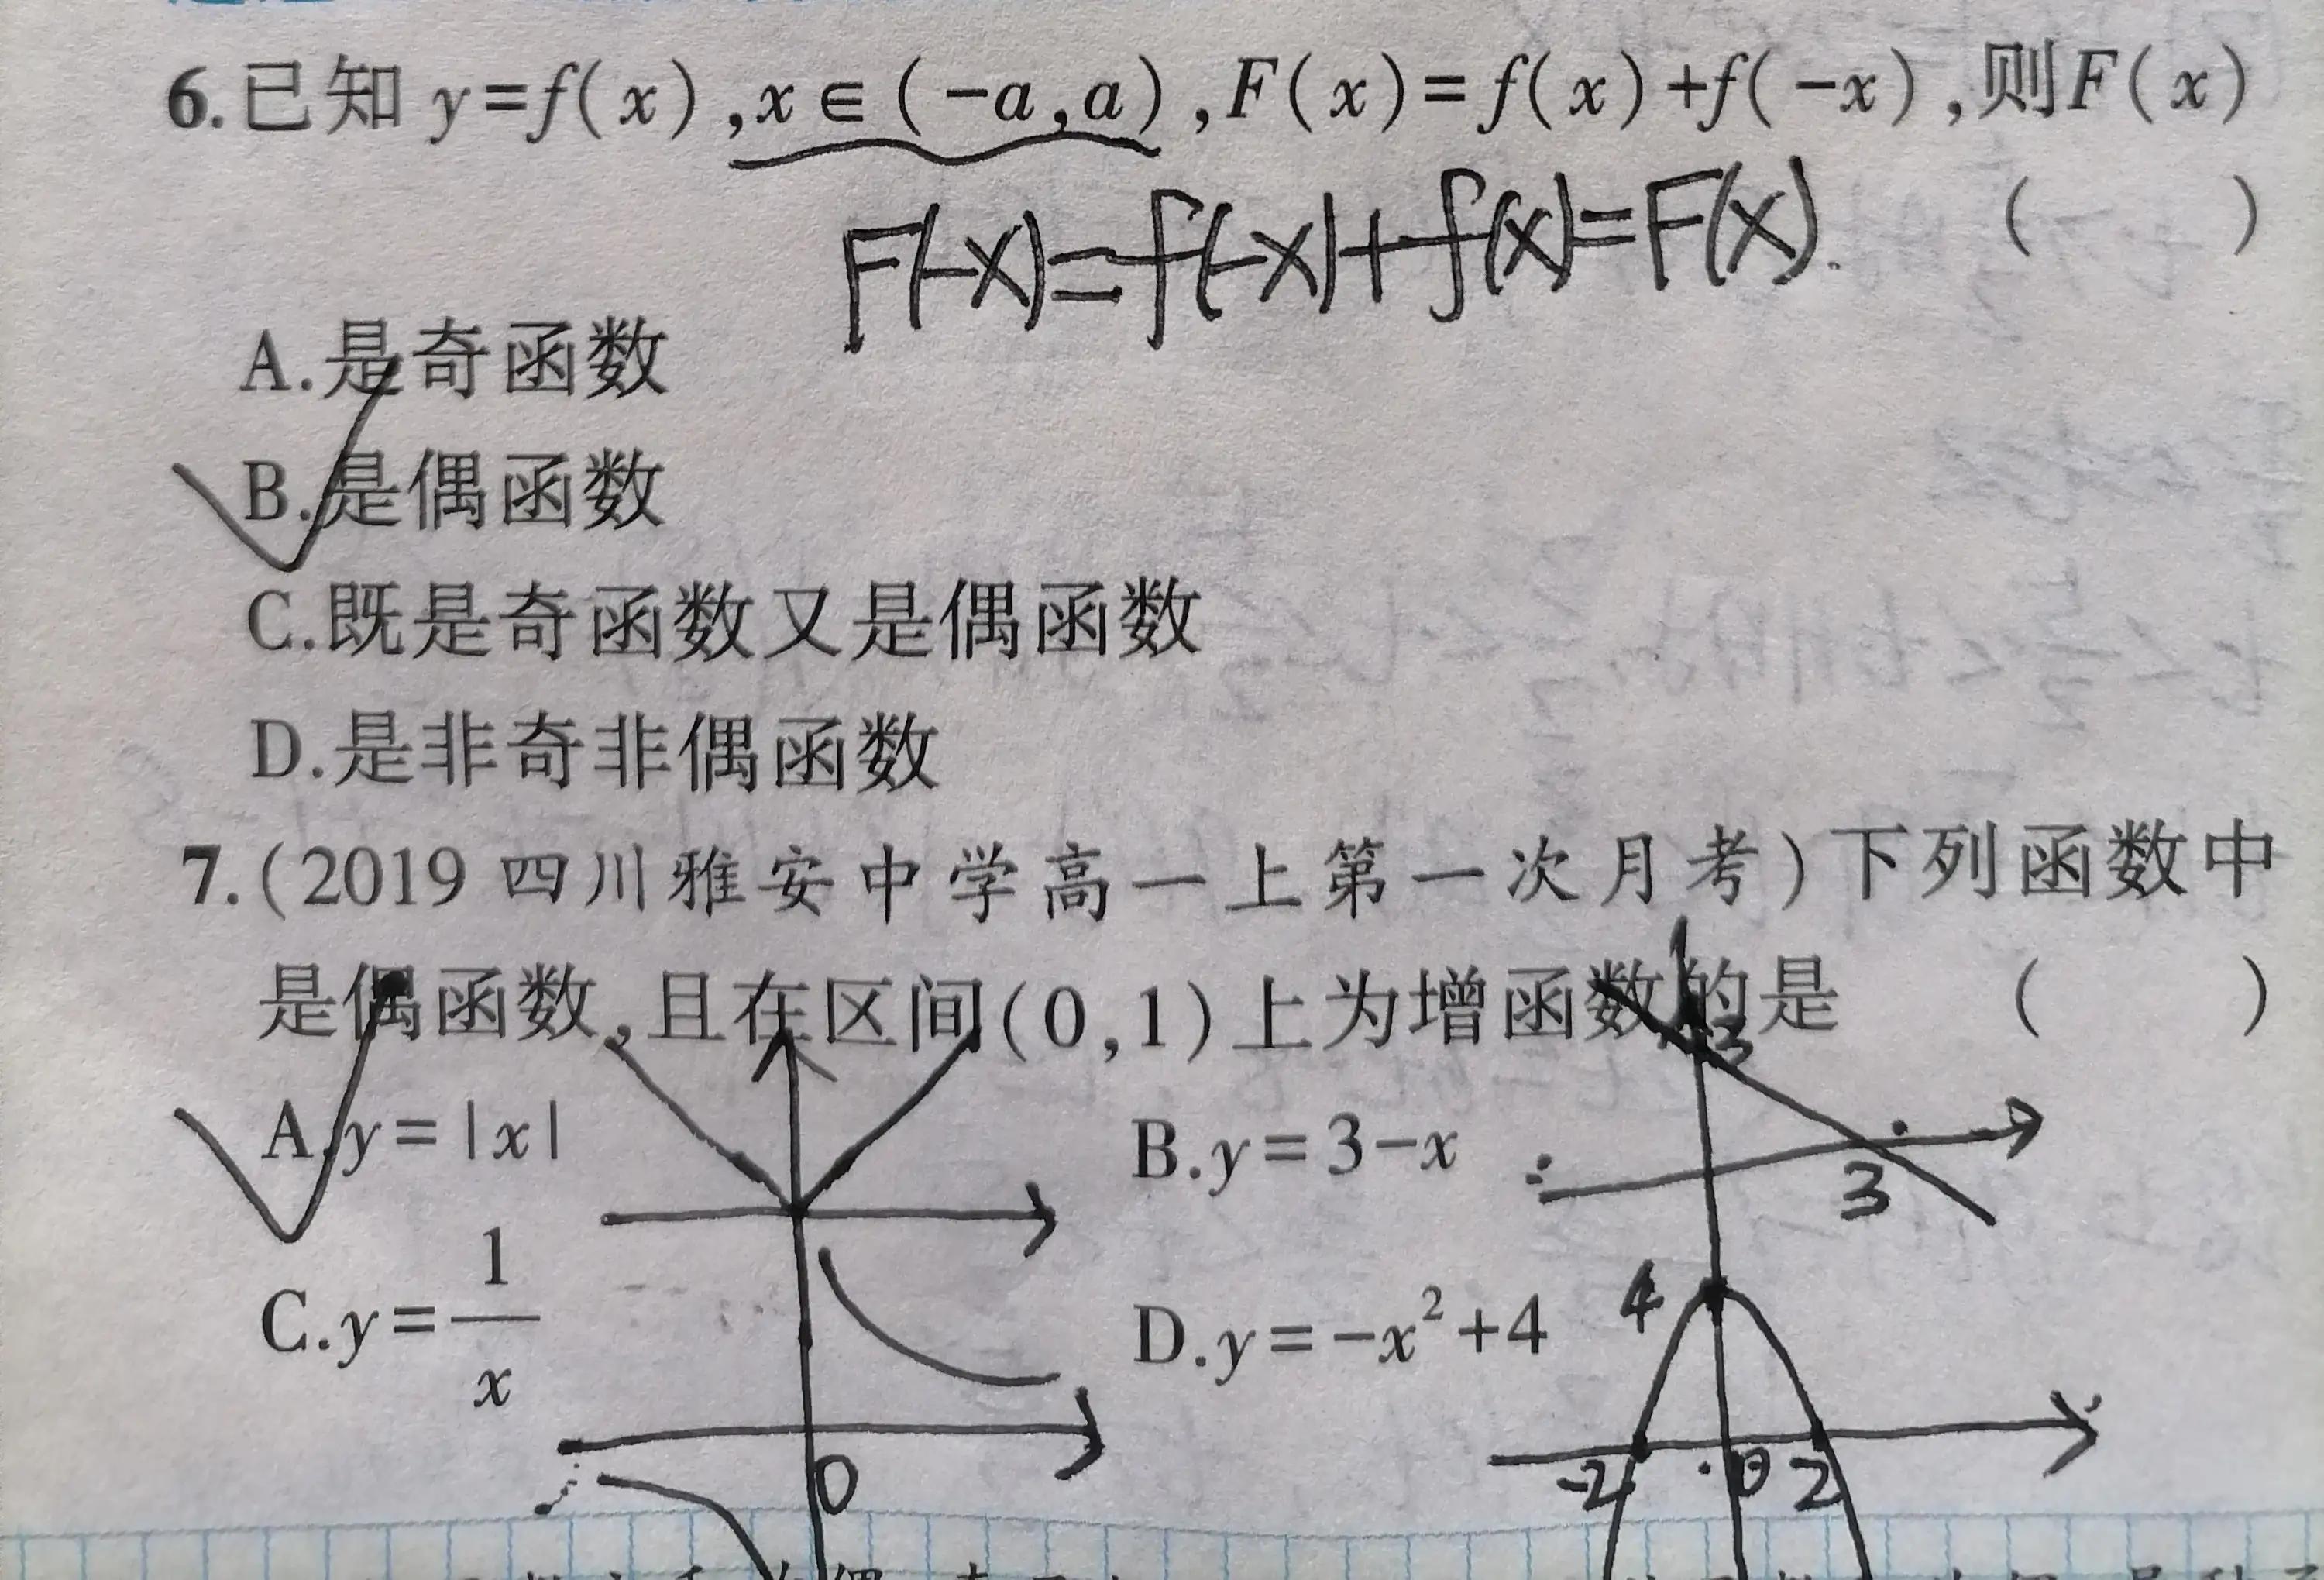 6.已知 y=f(x),x∈(-a,a),F(x)=f(x)+f(-x),则F(x)
(　　)
F(-x)=f(-x)+f(x)=F(x).
A.是奇函数
B.是偶函数
C.既是奇函数又是偶函数
D.是非奇非偶函数
7.(2019 四川雅安中学高一上第一次月考)下列函数中
是偶函数,且在区间(0,1)上为增函数的是 (　　)
3
A.y=|x| B.y=3-x
3
C.y=1/x D.y=-x²+4
4
0 -2 0 2